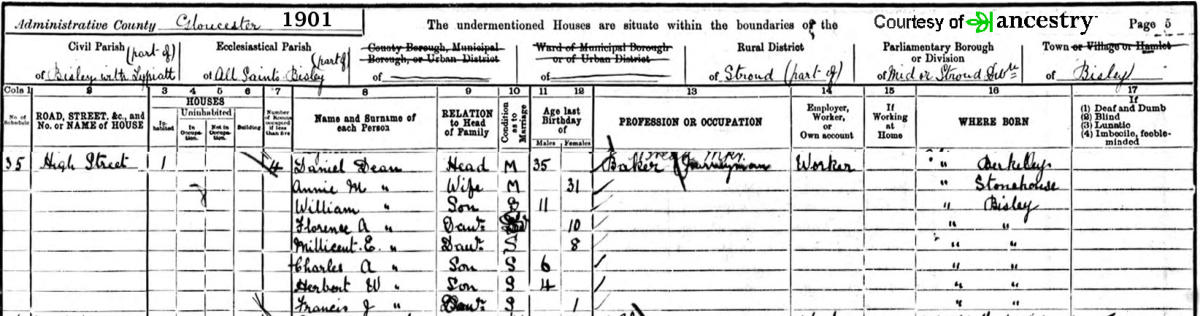 Administrative County Gloucester 1901 The undermentioned Houses are situate within the boundaries of the Courtesy of ancestry Page 5
Civil Parish (part of) of Bisley with Lypiatt
Ecclesiastical Parish (part of) of All Saints Bisley
County Borough, Municipal Borough, or Urban District of
Ward of Municipal Borough or of Urban District of
Rural District of Stroud (part of)
Parliamentary Borough or Division of Mid or Stroud Divn
Town or Village or Hamlet of Bisley
Cols 1 2 3 4 5 6 7 8 9 10 11 12 13 14 15 16 17
No. of Schedule
ROAD, STREET, &c., and No. or NAME of HOUSE
HOUSES
Inhabited
Uninhabited
In Occupation.
Not in Occupation.
Building
Number of Rooms occupied if less than five
Name and Surname of each Person
RELATION to Head of Family
Condition as to Marriage
Age last Birthday of
Males Females
PROFESSION OR OCCUPATION
Employer, Worker, or Own account
If Working at Home
WHERE BORN
If
(1) Deaf and Dumb
(2) Blind
(3) Lunatic
(4) Imbecile, feeble-minded
35 High Street 1 4 Daniel Dean Head M 35 Baker Journeyman Worker " Berkelley
Annie M " Wife M 31 " Stonehouse
William " Son S 11 " Bisley
Florence A " Daur 10 " "
Millicent E. " Daur S 8 " "
Charles A " Son S 6 " "
Herbert W " Son S 4 " "
Francis J " Daur S 1 " "